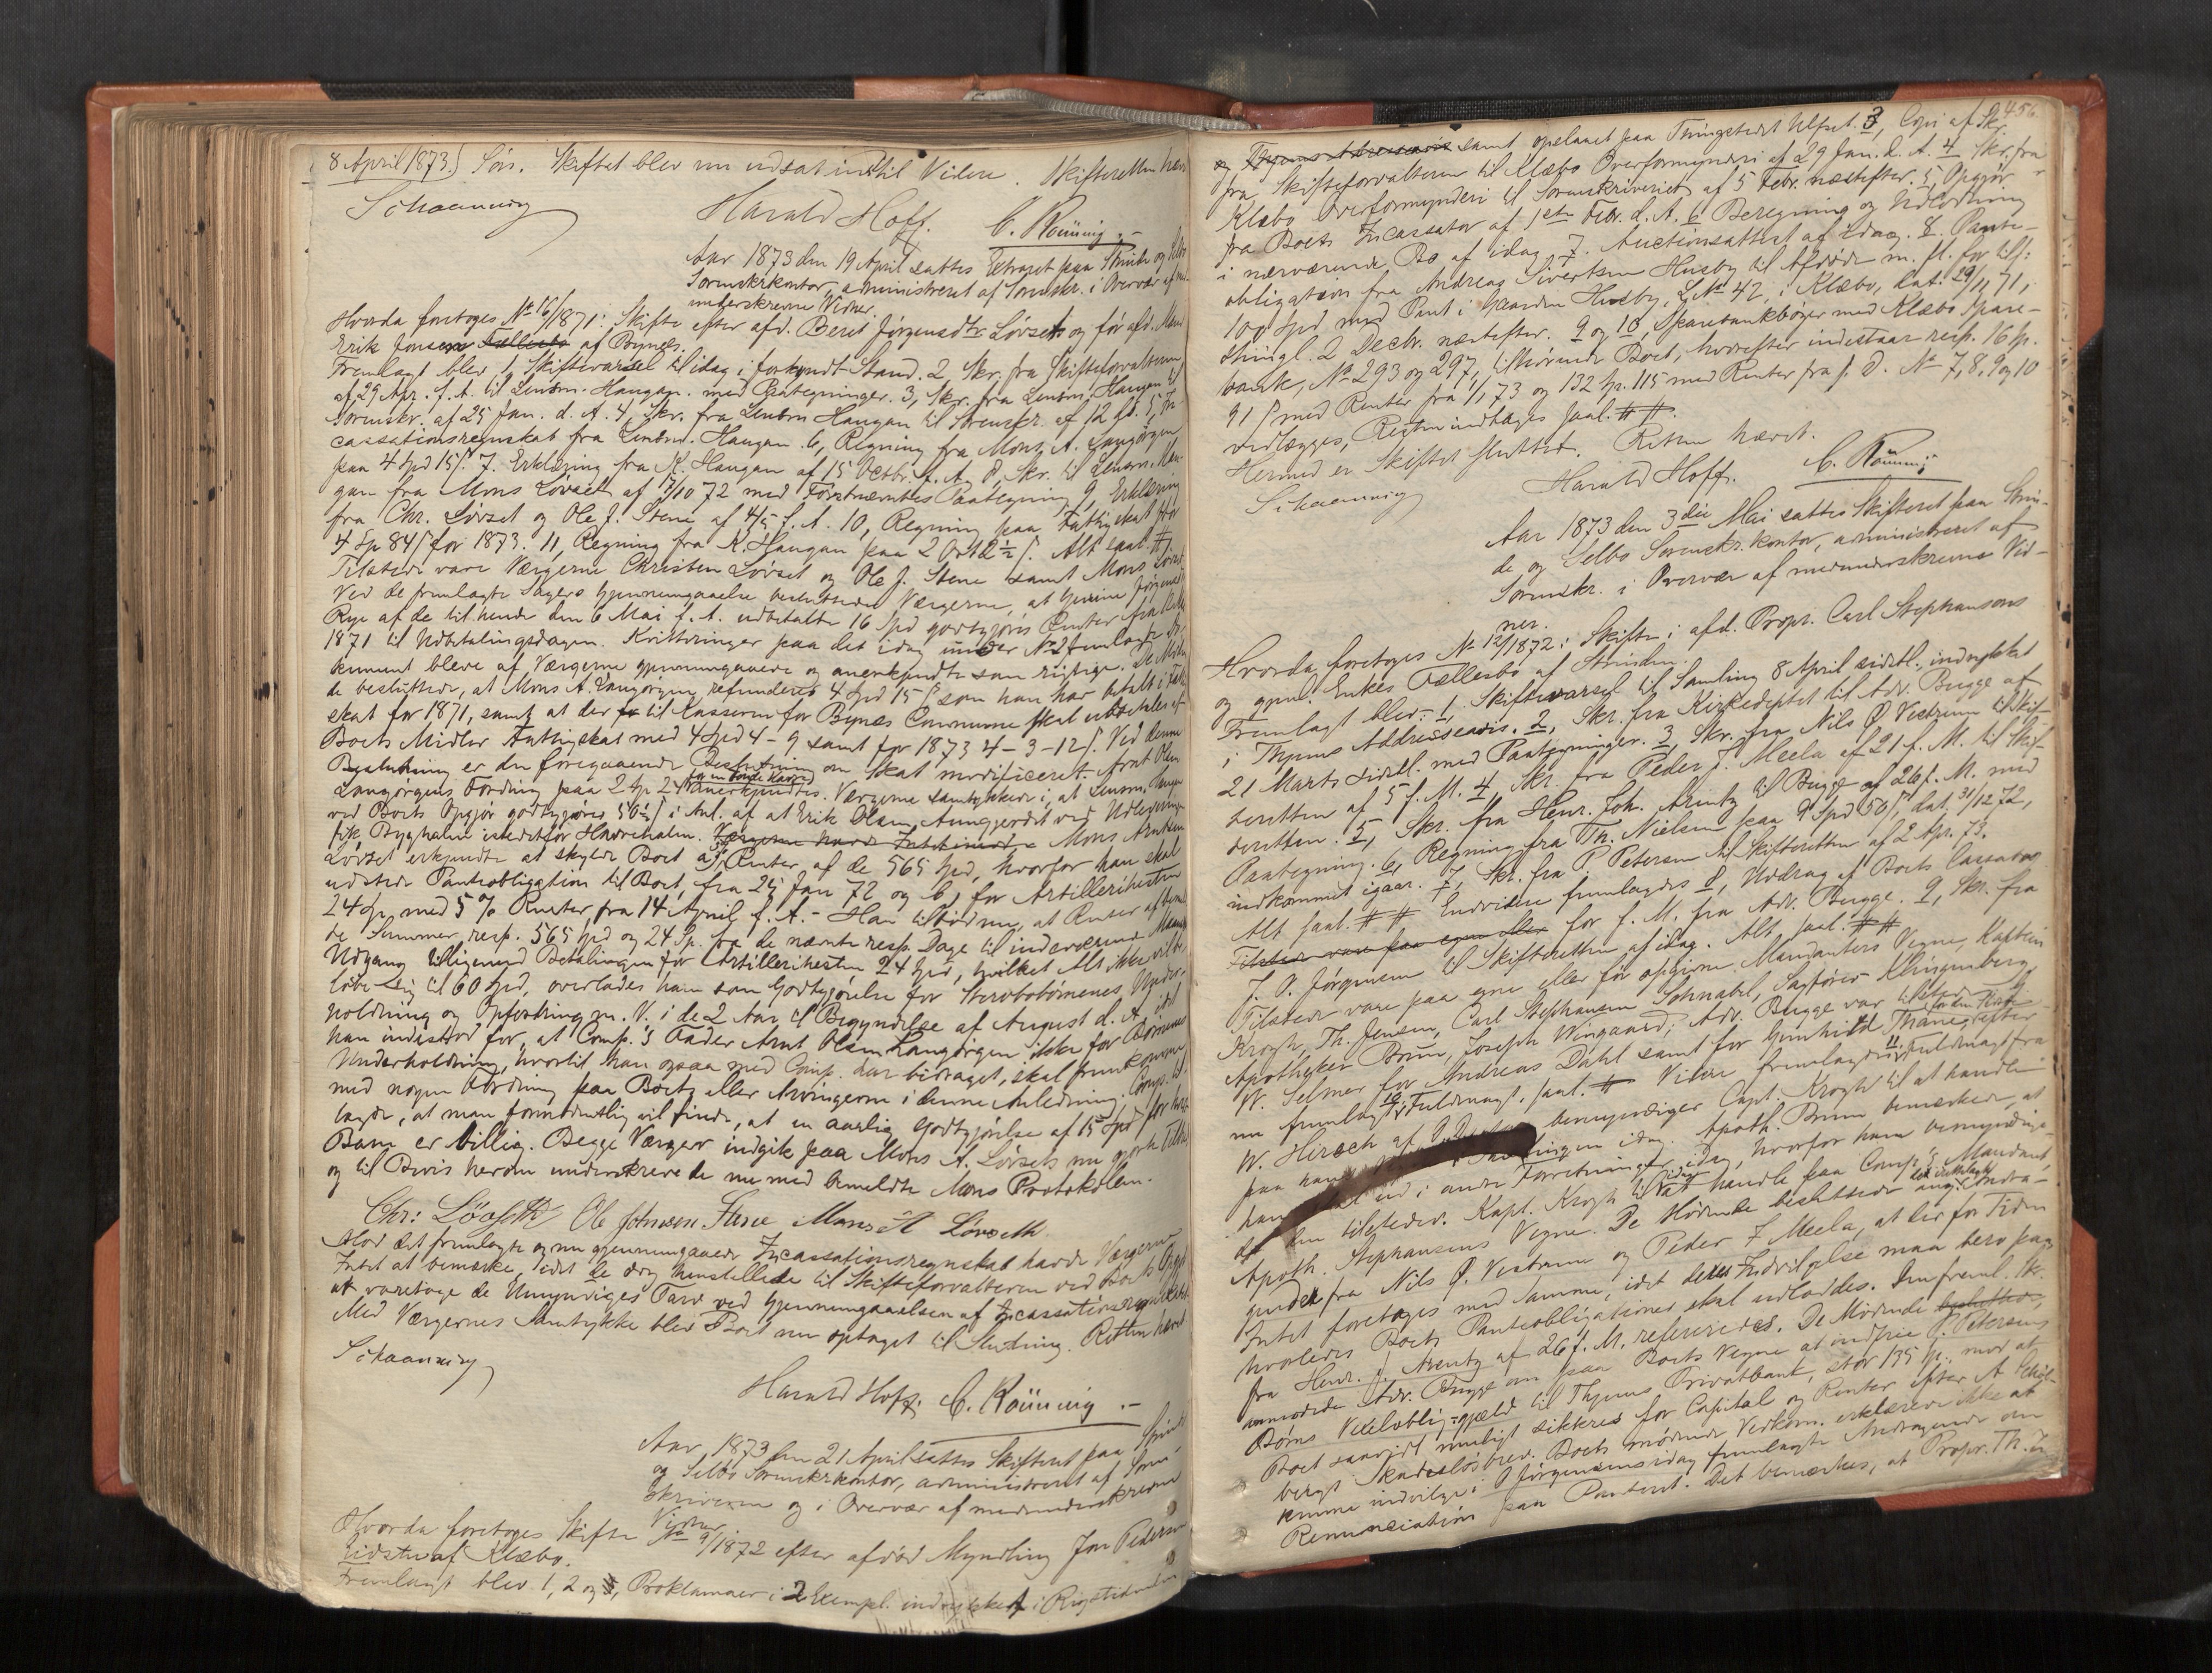 8 April 1873.) Sörs. Skiftet blev nu udsat indtil Videre. Skifteretten hævet
Schaanning Harald Hoff. C. Rönning.-
Aar 1873 den 19 April sattes Extraret paa Strinde og Selbo
Sorenskrkontor, administreret af Sorenskr. i Overvær af med-
underskrevne Vidner.
Hvorda foretoges No 16/1871: Skifte efter afd. Beret Jörgensdtr Lövset og før afd. Mand
Erik Jonsen Fællesbo af Bynes.
Fremlagt blev 1, Skiftevarsel til idag i forkyndt Stand. 2 Skr. fra Skifteforvalteren
af 29 Apr. f. A. til Lensm. Haugan med Paategninger. 3, Skr. fra Lensm. Haugan til
Sorenskr. af 25 Jan. d. A. 4, Skr. fra Lensm Haugan til Sorenskr. af 12 . 5, In-
cassationsregnskab fra Lensm. Haugan. 6, Regning fra Mons A. Langørgen
paa 4 Spd 15 ß. 7. Erklæring fra K. Haugan af 15 Octbr. f. A. 8, Skr. til Lensm. Hau-
gan fra Mons Lövset af 17/10 72 med Førstnævntes Paategning 9, Erklæring
fra Chr. Lövset og Ole J. Stene af 4/5 f. A. 10, Regning paa Fattigskat stor
4 Sp 84 ß for 1873. 11, Regning fra K. Haugan paa 2 Ort 2½ ß. Alt saal. #.
Tilstede vare Værgerne Christen Lövset og Ole J. Stene samt Mons Lövset
Ved de fremlagte Sagers Gjennemgaaelse besluttede Værgerne, at
Rye af de til hende den 6 Mai f. A. udbetalte 16 Spd godtgjøres Renter fra
1871 til Udbetalingsdagen. Kvitteringer paa det idag under No 2 fremlagte Do-
kument bleve af Værgerne gjennemgaaede og anerkjendte som rigtige. De Mødte
de besluttede, at Mons A. Langørgen refunderes 4 Spd 15 ß som han har betalt i Fattig-
skat for 1871, samt at der til Kassereren for Bynes Commune skal udbetales af
Boets Midler Fattigskat med 4 Spd 4 - 9 samt for 1873 4 - 3 - 12 ß. Ved denne
Beslutning er den foregaaende Beslutning om Skat modificeret. Arnt Olsen
Langørgens Fordring paa 2 Sp 24 anerkjendtes. Værgerne samtykkede i, at Lensm. Haugan
ved Boets Opgjør godtgjøres 50½ ß i Anl. af at Erik Olsen Aungjerdet ved Udlægningen
fik Byghalm istedetfor Havrehalm. Værgerne havde Intet imod. - Mons Arntsen
Lövset erkjendte at skylde Boet a) Renter af de 565 Spd, hvorfor han skal
udstede Panteobligation til Boet, fra 25 Jan 72 og b) for Artillerihesten
24 Sp med 5 % Renter fra 14 April f. A. - Han tilbød nu, at Renter af disse
de Summer, resp. 565 Spd og 24 Sp. fra de nævnte resp. Dage til indeværende Maaneds
Udgang tilligemed Betalingen for Artillerihesten 24 Spd, hvilket Alt ikke vil be-
løbe sig til 60 Spd, overlades ham som Godtgjörelse for Stervbobörnenes Under-
holdning og Opfostring m. V. i de 2 Aar til Begyndelse af August d. A., idet
han indestod for, at Comp.'s Fader Arnt Olsen Langörgen ikke for Börnenes
Underholdning, hvortil han ogsaa med Comp. har bidraget, skal fremkomme
med nogen Fordring paa Boet eller Arvingerne i denne Anledning. Comp. til-
lagde, at man formodentlig vil finde, at en aarlig Godtgjörelse af 15 Spd for hvert
Barn er billig. Begge Værger indgik paa Mons A. Lövsets nu gjorte Tilbud
og til Bevis herom underskreve de nu med bemeldte Mons Protokollen.
Chr: Löfseth Ole Johnsen Stene Mons A Lövseth
Mod det fremlagte og nu gjennemgaaede Incassationsregnskab havde Værgerne
Intet at bemærke, idet de dog henstillede til Skifteforvalteren ved Boets Opgjör
at varetage de Umyndiges Tarv ved Gjennemgaaelsen af Incassationsregnskabet
Med Værgernes Samtykke blev Boet nu optaget til Slutning. Retten hævet
Schaanning
Harald Hoff. C. Rönning.-
Aar 1873 den 21 April sattes Skifteret paa Strinde
og Selbo Sorenskrkontor, administreret af Soren-
skriveren og i Overvær af medunderskrevne
Vidner
Hvorda foretoges Skifte No 9/1872 efter afdød Myndling Jon Pedersen
Lidstu af Klæbo.
Fremlagt blev 1, 2 og 3, Proklamaer i 2 Exempl. indrykket i Rigstidenden
456.
og Thjems Adresseavis samt opslaaet paa Thingstedet Ulfset. 3, Copi af Skr.
fra Skifteforvalteren til Klæbo Overformynderi af 29 Jan. d. A. 4 Skr. fra
Klæbo Overformynderi til Sorenskriveriet af 5 Febr. næstefter. 5, Opgjör
fra Boets Incassator af 1ste Febr. d. A. 6 Beregning og Udlodning
i nærværende Bo af idag 7. Auctionsattest af idag. 8. Pante-
obligation fra Andreas Sivertsen Husby til Afdøde m. fl. for tils:
100 Spd med Pant i Gaarden Husby, L No 42, i Klæbo, dat. 29/11 71,
thingl. 2 Decbr. næstefter. 9 og 10, Sparebankbøger med Klæbo Spare-
bank, No 293 og 297, tilhørende Boet, hvorefter indestaar resp. 16 Sp.
91 ß med Renter fra 1/1 73 og 132 Sp. 115 med Renter fra s. D. No 7, 8, 9 og 10
vedlægges, Resten indtages saal. # #.
Hermed er Skiftet sluttet. Retten hævet.
Schaanning Harald Hoff. C. Rönning
Aar 1873 den 3die Mai sattes Skifteret paa Strin-
de og Selbo Sorenskr. kontor, administreret af
Sorenskr. i Overvær af medunderskrevne Vid-
ner.
Hvorda foretoges No 12/1872: Skifte i afd. Propr. Carl Stephansens
og gjenl. Enkes Fællesbo af Strinden.
Fremlagt blev: 1, Skiftevarsel til Samling 8 April sidstl., indrykket
i Thjems Addresseavis. 2, Skr. fra Kirkedeptet til Adv. Bugge af
21 Marts sidstl. med Paategninger. 3, Skr. fra Nils Ø. Vestrum til Skif-
teretten af 5 f. M. 4, Skr. fra Peder J. Meela af 21 f. M. til Skif-
teretten. 5, Skr. fra Henr. Joh. Arentz til Bugge af 26 f. M. med
Paategning. 6, Regning fra Th. Nielsen paa 9 Spd 50 ß, dat. 31/12 72,
indkommet igaar. 7, Skr. fra P Petersen til Skifteretten af 2 Apr. 73.
Alt saal. # # Endvidere fremlagdes 8, Uddrag af Boets Cassabog
Tilstede vare paa egne eller for f. M. fra Adv. Bugge. 9, Skr. fra
J. O. Jörgensen til Skifteretten af idag. Alt saal. # #
Tilstede vare paa egne eller før opgivne Mandanters Vegne, Kaptein
Krogh, Th. Jensen, Carl Stephansen Schnabel, Sagfører Klingenberg
Apotheker Brun, Joseph Wingaard; Adv. Bugge var tilstede
W. Selmer for Andreas Dahl samt for Gunhild Thanegjetter
nu fremlagt 10, Fuldmagt, saal. # Videre fremlagdes 11, Fuldmagt fra
W. Hirsch af bemyndiger Capt. Krogh til at handle
paa hans Samlingen idag. Apoth. Brun bemærkede, at
han skal ud i andre Forretninger idag, hvorfor han bemyndige-
de den tilstedev. Kapt. Krogh til at handle paa Comp's Mandant
Apoth. Stephansens Vegne. De Mødende besluttede ang. Andra-
gendet fra Nils Ø. Vestrum og Peder J Meela, at der for Tiden
Intet foretages med samme, idet deres Indvilgelse maa bero paa,
hvorledes Boets Panteobligationer skal udloddes. Den freml. Skr.
fra Henr. J. Arentz af 26 f. M. refereredes. De Mødende besluttede,
anmodede Adv. Bugge om paa Boets Vegne at indfrie P. Petersens
Börns Vexeloblig.-gjæld til Thjems Privatbank, stor 195 Sp, mod at
Boet saavidt muligt sikkres for Capital og Renter efter A Schöl-
bergs Skadesløsbrev. Boets mødende Vedkom. erklærede ikke at
kunne indvilge i O Jörgensens idag fremlagte Andragende om
Renunciation paa Panteret. Det bemærkes, at Propr. Th. Jen-